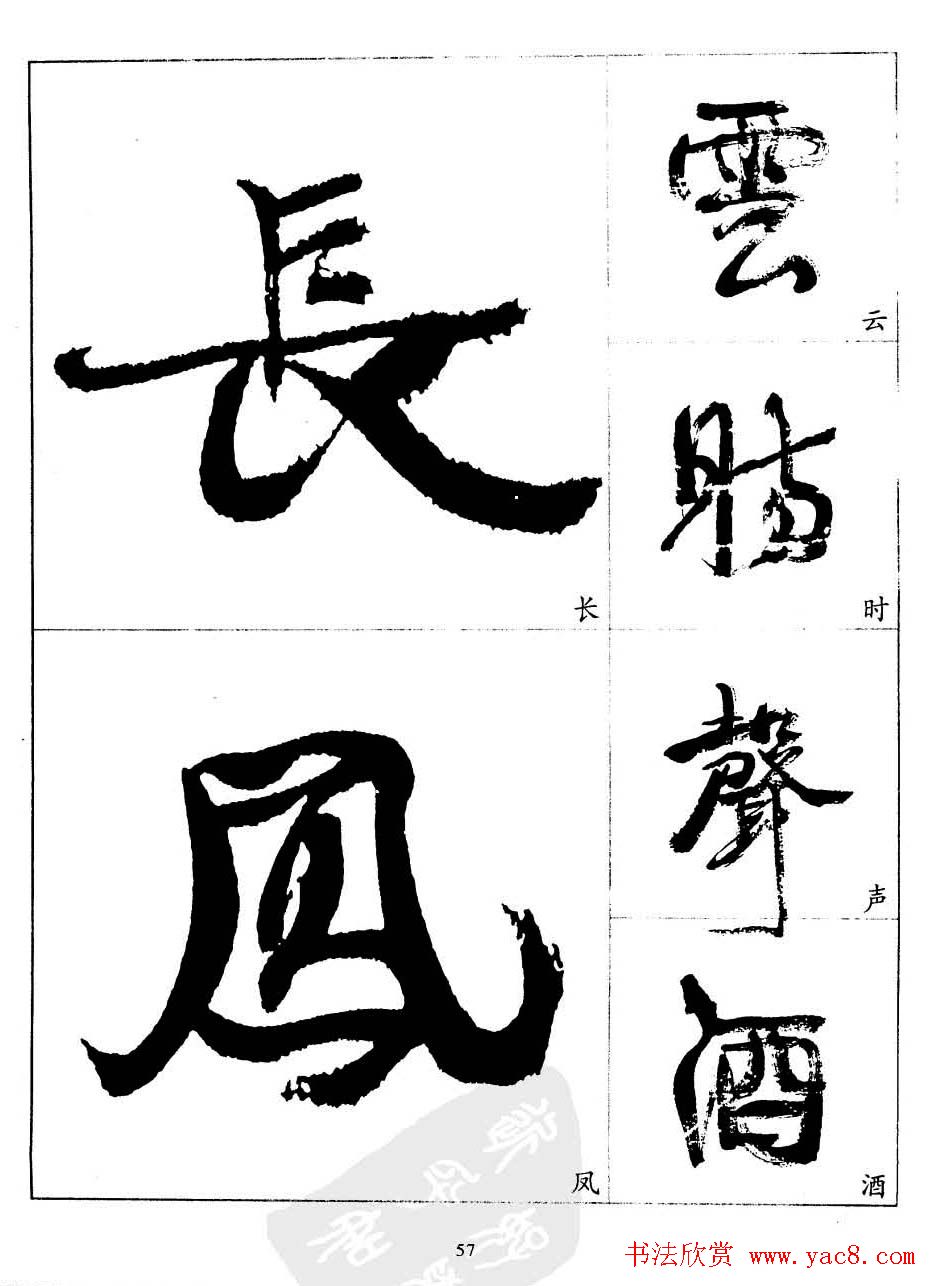 長
长
雲
云
時
时
聲
声
鳳
凤
酒
酒
57
书法欣赏 www.yac8.com